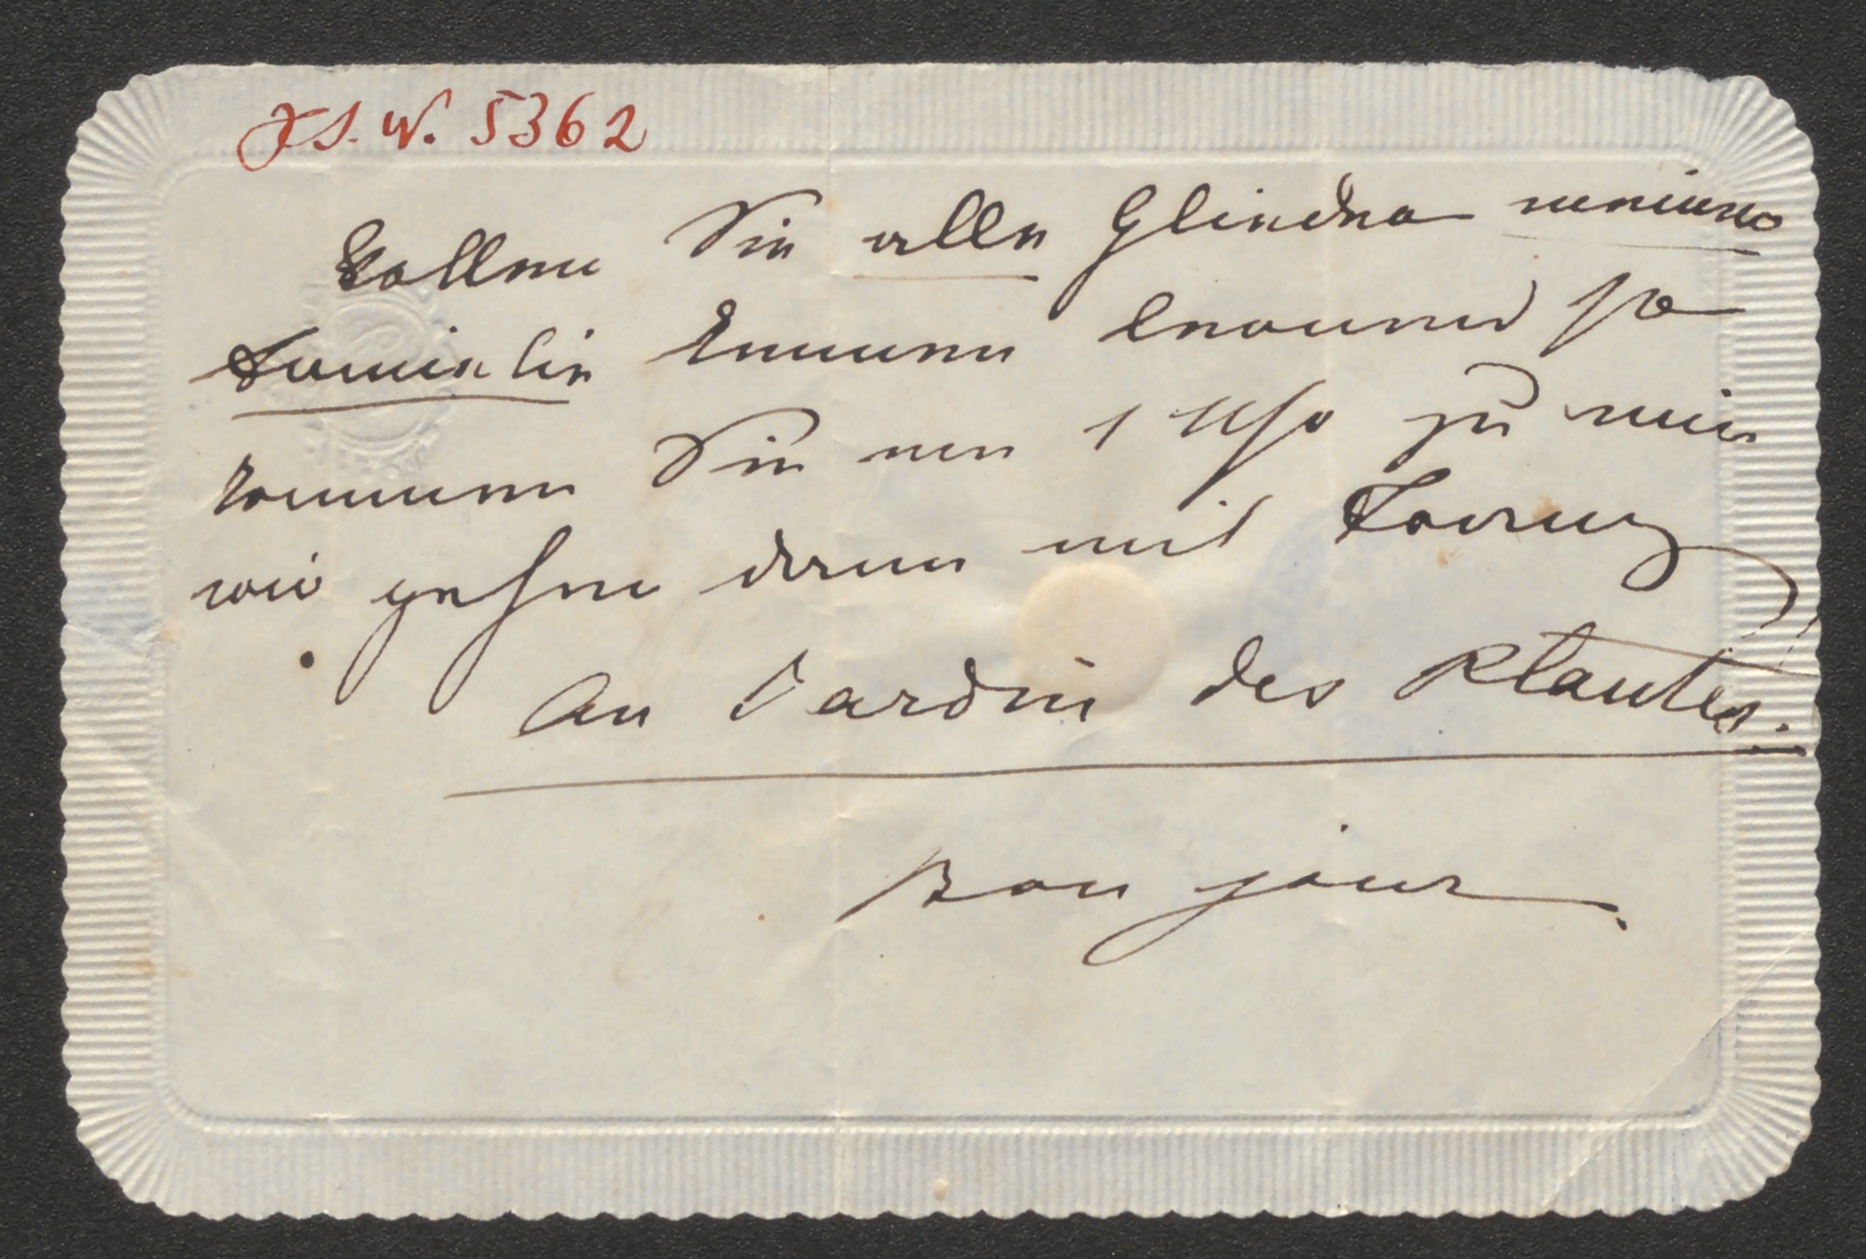 J.S.W. 5362
Wollen Sie alle Glieder meiner
Familie kennen lernen so
kommen Sie um 1 Uhr zu mir
wir gehen dann mit
Au Jardin des Plantes.
Bon jour.